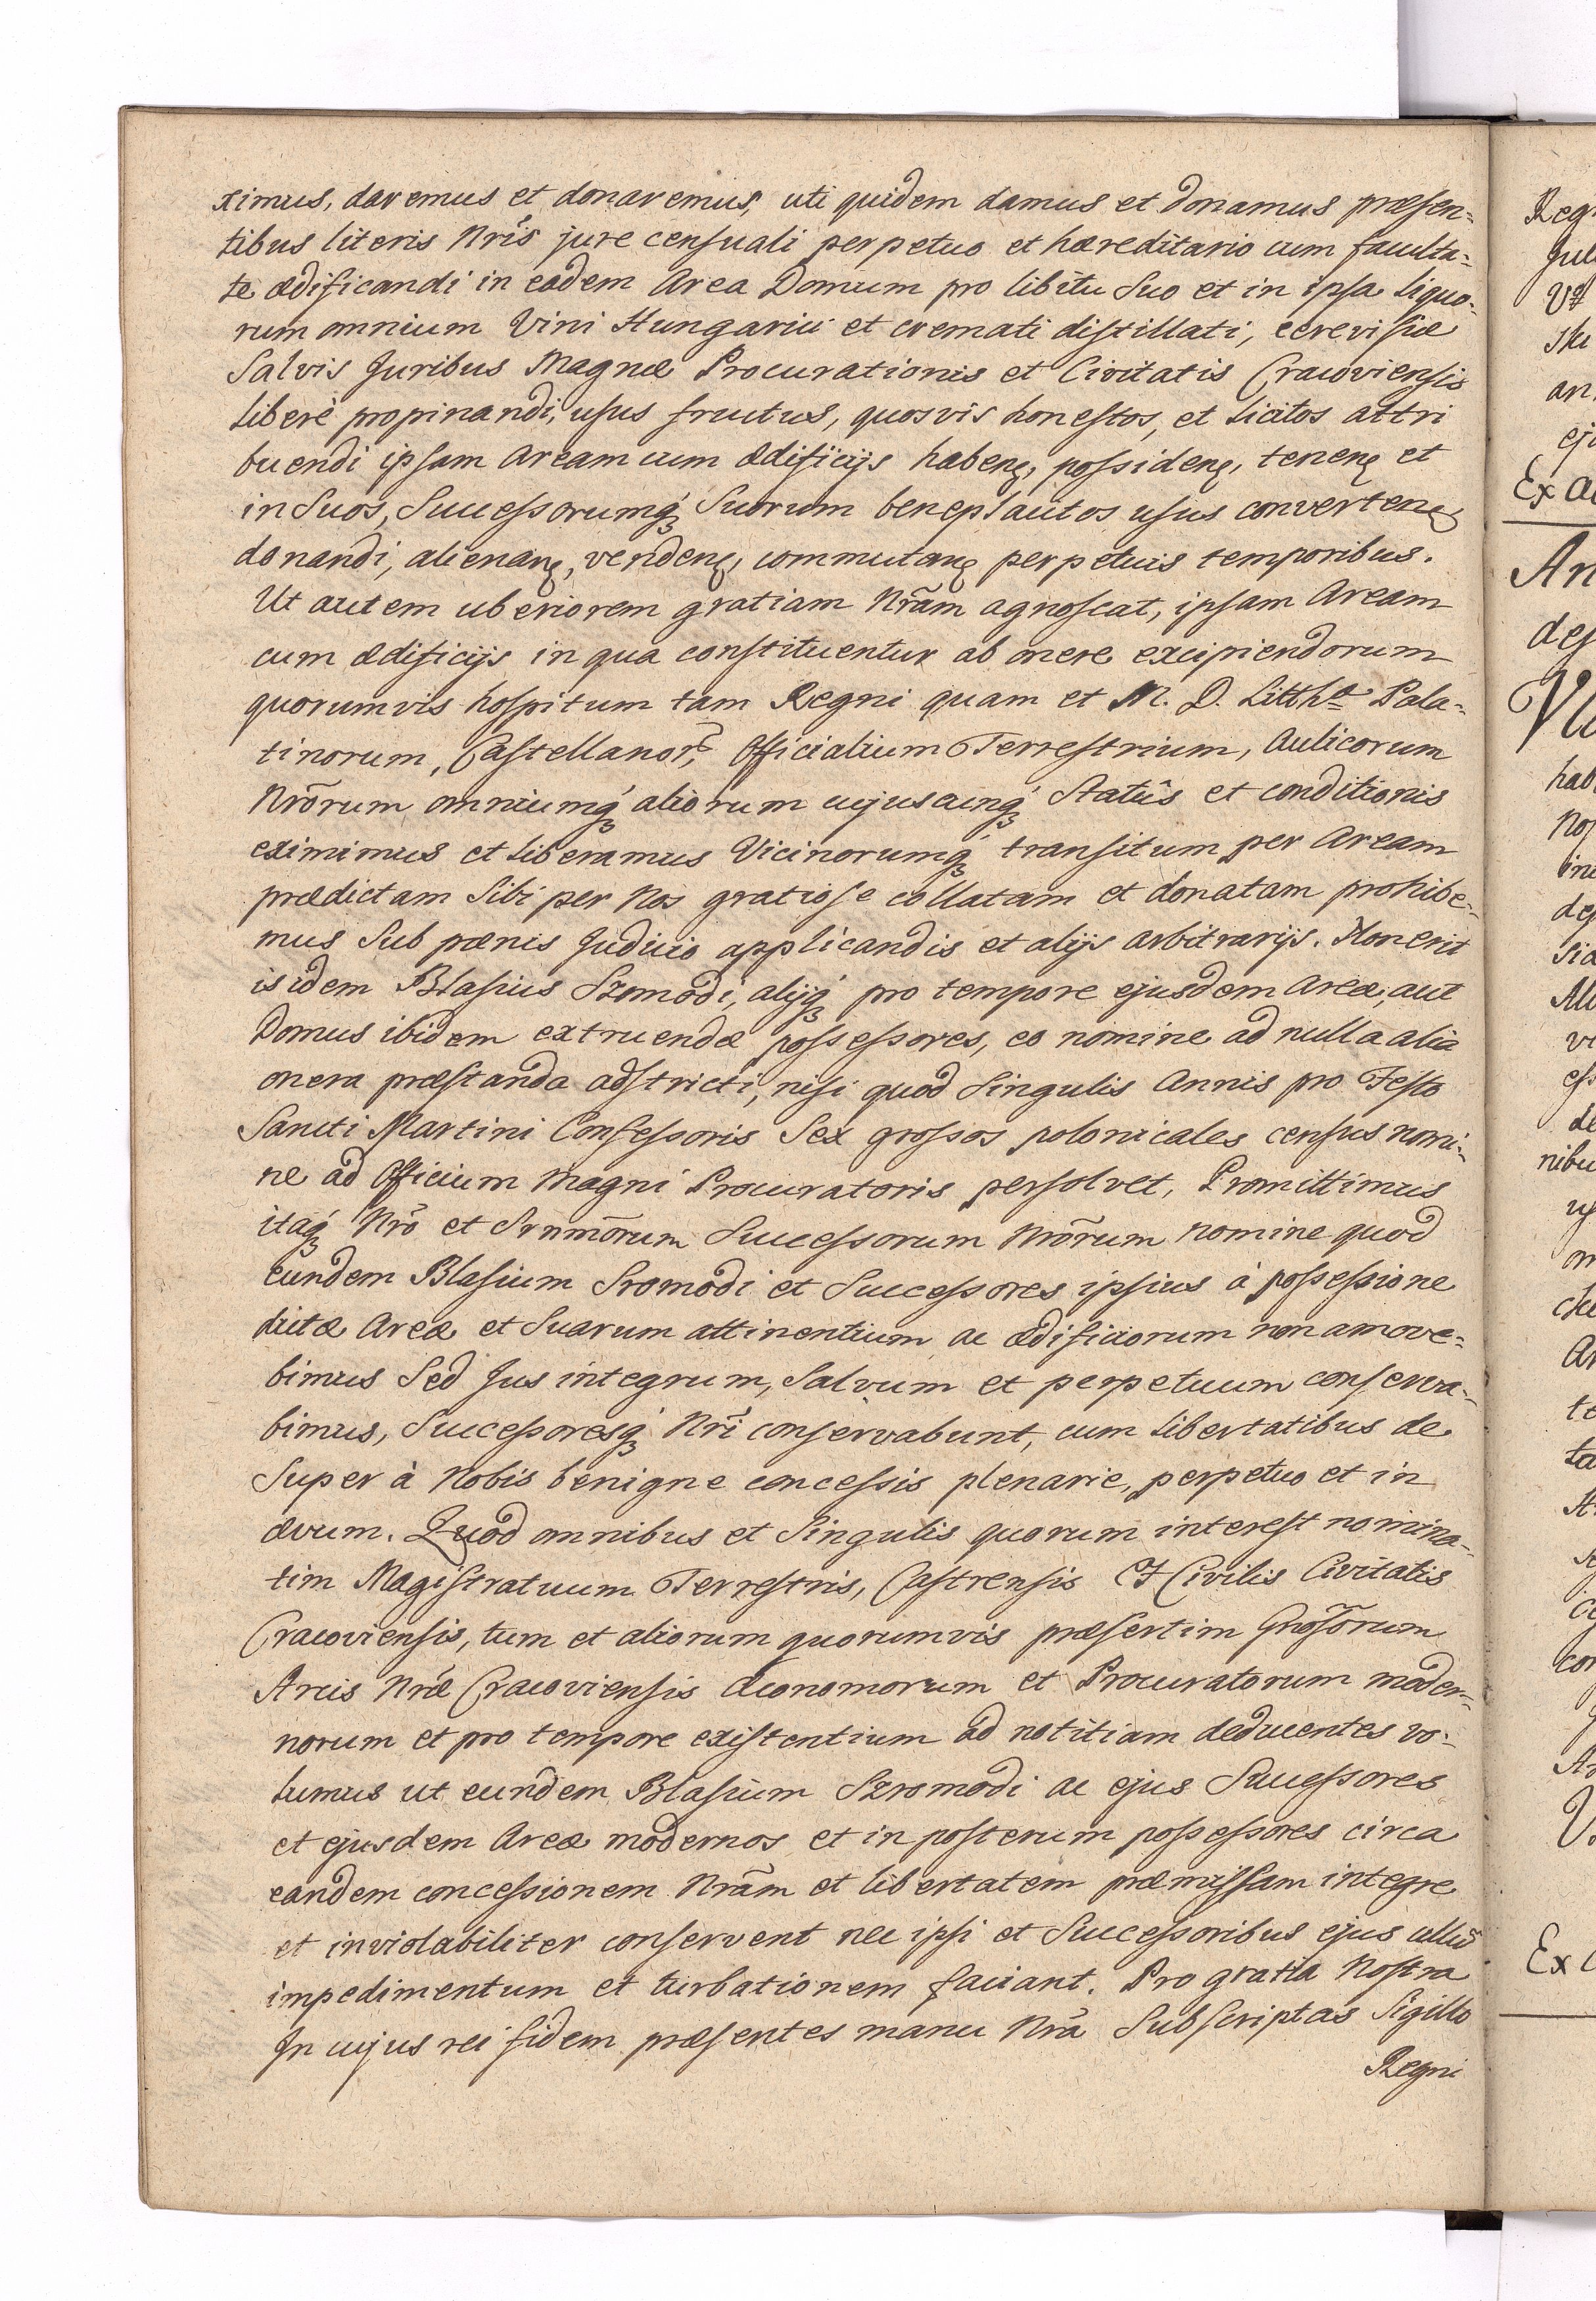 ximus, daremus et donaremus, uti quidem damus et donamus præsen=
tibus literis Nr̃is jure censuali perpetuo et hæreditario cum faculta=
te ædificandi in eadem Area Domum pro libitu Suo et in ipsa liquo=
rum omnium Vini Hungarici et cremati distillati, cerevisiæ
Salvis Juribus Magnæ Procurationis et Civitatis Cracoviensis
liberè propinandi, usus fructus, quosvis honestos, et licitos attri
buendi ipsam Aream cum ædificijs habenḑ, possidenḑ, tenenḑ et
in Suos, Successorumq́ꝫ Suorum beneplacitos usus convertenḑ
donandi, alienanḑ, vendenḑ, commutanḑ perpetuis temporibus.
Ut autem uberiorem gratiam Nr̃am agnoscat, ipsam Aream
cum ædificijs in qua constituentur ab onere excipiendorum
quorumvis hospitum tam Regni quam et M. D. Litthæ Pala=
tinorum, Castellanor̃, Officialium Terrestrium, Aulicorum
Nr̃orum omniumq́ꝫ aliorum cujuscunq́ꝫ Statûs et conditionis
eximimus et liberamus Vicinorumq́ꝫ transitum per Aream
prædictam Sibi per Nos gratiose collatam et donatam prohibe=
mus Sub pœnis Judicio applicandis et alijs arbitrarijs. Non erit
is idem Blasius Szomodi, alijq́ꝫ pro tempore ejusdem Areæ, aut
Domus ibidem extruendæ possessores, eo nomine ad nulla alia
onera præstanda adstricti, nisi quod Singulis Annis pro Festo
Sancti Martini Confessoris Sex grossos polonicales census nomi=
ne ad Officium Magni Procuratoris persolvet, Promittimus
itaq́ꝫ Nr̃o et Srnmõrum Successorum Nr̃orum nomine quod
eundem Blasium Sromodi et Successores ipsius à possessione
dictæ Areæ et Suarum attinentium ac ædificiorum non amove=
bimus Sed Jus integrum, Salvum et perpetuum conserva=
bimus, Successoresq́ꝫ Nr̃i conservabunt, cum libertatibus de
Super à Nobis benigne concessis plenarie, perpetuo et in
ævum. Quod omnibus et Singulis quorum interest nomina=
tim Magistratuum Terrestris, Castrensis Et Civilis Civitatis
Cracoviensis, tum et aliorum quorumvis præsertim Gnosõrum
Arcis Nr̃æ Cracoviensis Œconomorum et Procuratorum moder=
norum et pro tempore existentium ad notitiam deducentes vo=
lumus ut eundem Blasium Szromodi ac ejus Successores
et ejusdem Areæ modernos et in posterum possessores circa
eandem concessionem Nr̃am et libertatem præmissam integre
et inviolabiliter conservent nec ipsi et Successoribus ejus ullũ
impedimentum et turbationem faciant. Pro gratia Nostra
In cujus rei fidem præsentes manu Nr̃a Subscriptas Sigillo
Regni